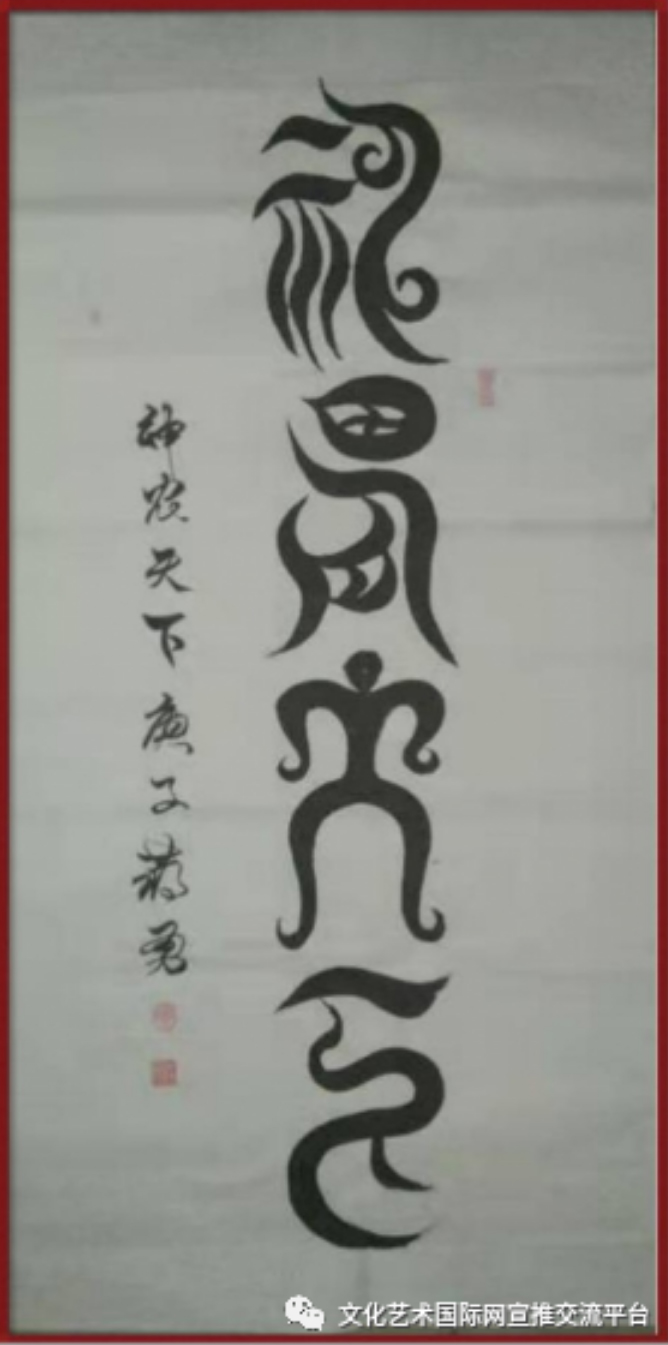 神农天下
神农天下庚子蒋勇
文化艺术国际网宣推交流平台